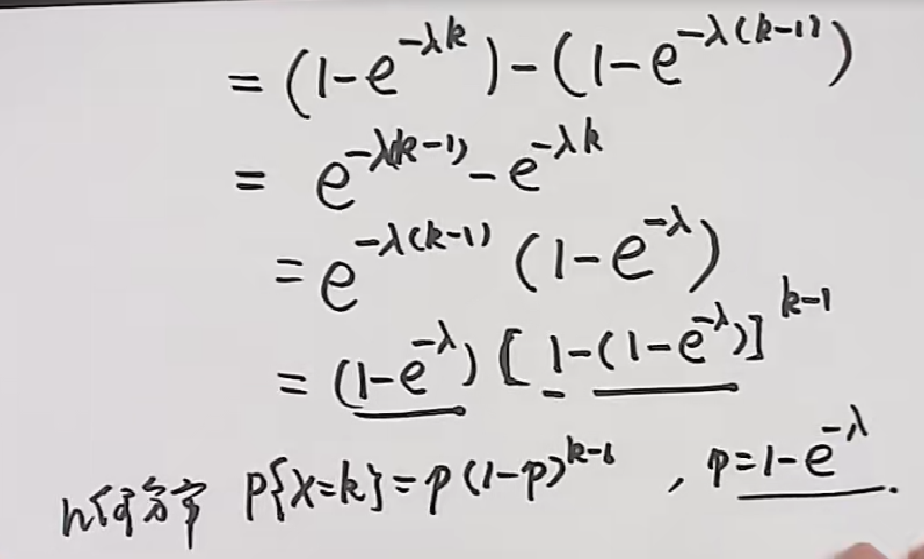 = (1-e^{-λk}) - (1-e^{-λ(k-1)})
= e^{-λ(k-1)} - e^{-λk}
= e^{-λ(k-1)} (1-e^{-λ})
= (1-e^{-λ}) [1-(1-e^{-λ})]^{k-1}
几何分布 P{X=k} = p(1-p)^{k-1} , p=1-e^{-λ}.